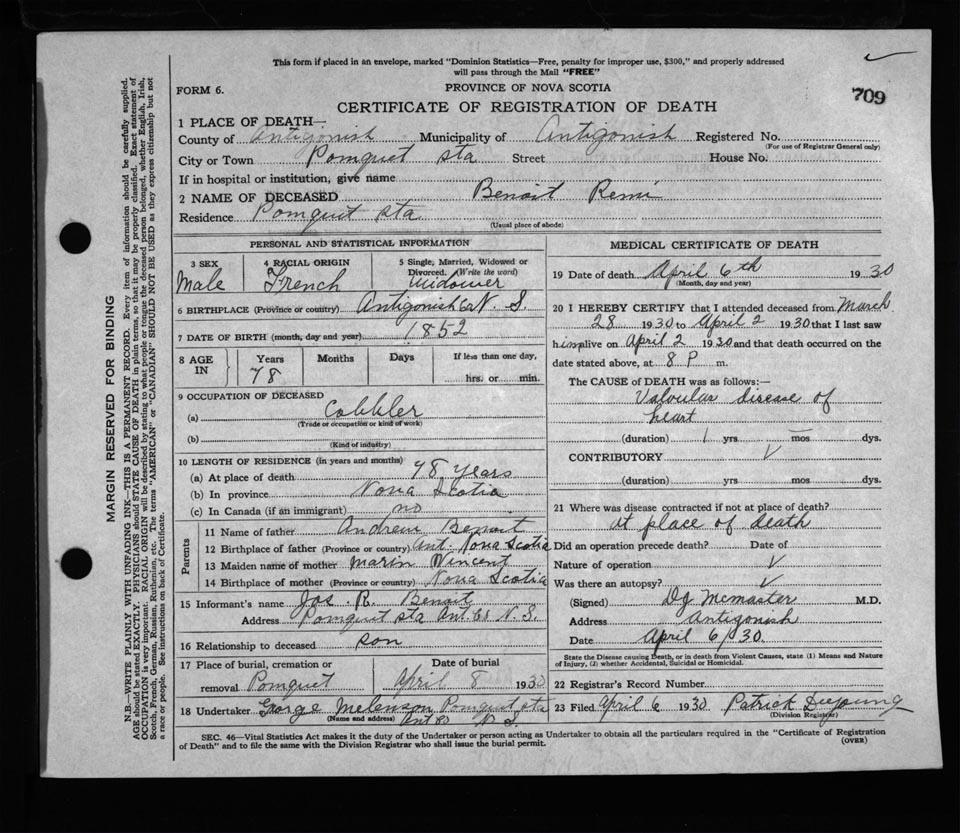 This form if placed in an envelope, marked "Dominion Statistics—Free, penalty for improper use, $300," and properly addressed
will pass through the Mail "FREE"
FORM 6.
PROVINCE OF NOVA SCOTIA
709
CERTIFICATE OF REGISTRATION OF DEATH
1 PLACE OF DEATH—
County of Antigonish Municipality of Antigonish Registered No.
(For use of Registrar General only)
City or Town Pomquet Sta Street House No.
If in hospital or institution, give name
2 NAME OF DECEASED Benoit Remi
Residence Pomquet Sta
(Usual place of abode)
PERSONAL AND STATISTICAL INFORMATION
3 SEX Male
4 RACIAL ORIGIN French
5 Single, Married, Widowed or
Divorced. (Write the word)
Widower
6 BIRTHPLACE (Province or country) Antigonish Co N. S.
7 DATE OF BIRTH (month, day and year) 1852
8 AGE IN
Years 78
Months
Days
If less than one day,
hrs. or min.
9 OCCUPATION OF DECEASED
(a) Cobbler
(Trade or occupation or kind of work)
(b)
(Kind of industry)
10 LENGTH OF RESIDENCE (in years and months)
(a) At place of death 78 years
(b) In province Nova Scotia
(c) In Canada (if an immigrant) no
Parents
11 Name of father Andrew Benoit
12 Birthplace of father (Province or country) Ant. Nova Scotia
13 Maiden name of mother Marin Vincent
14 Birthplace of mother (Province or country) Nova Scotia
15 Informant's name Jos. R. Benoit
Address Pomquet Sta Ant. Co N. S.
16 Relationship to deceased son
17 Place of burial, cremation or
removal Pomquet
Date of burial
April 8 1930
18 Undertaker George Melenson Pomquet Sta
(Name and address) Ant Co N. S.
MEDICAL CERTIFICATE OF DEATH
19 Date of death April 6th 1930
(Month, day and year)
20 I HEREBY CERTIFY that I attended deceased from March
28 1930 to April 2 1930 that I last saw
him alive on April 2 1930 and that death occurred on the
date stated above, at 8 P m.
The CAUSE of DEATH was as follows:—
Valvular disease of
heart
(duration) 1 yrs — mos dys.
CONTRIBUTORY
(duration) yrs. mos. dys.
21 Where was disease contracted if not at place of death?
at place of death
Did an operation precede death? Date of
Nature of operation
Was there an autopsy?
(Signed) DJ McMaster M.D.
Address Antigonish
Date April 6/30
State the Disease causing Death, or in death from Violent Causes, state (1) Means and Nature
of Injury, (2) whether Accidental, Suicidal or Homicidal.
22 Registrar's Record Number
23 Filed April 6 1930 Patrick DeYoung
(Division Registrar)
SEC. 46—Vital Statistics Act makes it the duty of the Undertaker or person acting as Undertaker to obtain all the particulars required in the "Certificate of Registration
of Death" and to file the same with the Division Registrar who shall issue the burial permit.
(OVER)
MARGIN RESERVED FOR BINDING
N.B.—WRITE PLAINLY WITH UNFADING INK—THIS IS A PERMANENT RECORD. Every item of information should be carefully supplied.
AGE should be stated EXACTLY. PHYSICIANS should STATE CAUSE OF DEATH in plain terms, so that it may be properly classified. Exact statement of
OCCUPATION is very important. RACIAL ORIGIN will be described by stating to what people or tongue the deceased person belonged, whether English, Irish,
Scotch, French, German, Russian, Ruthenian, etc. The terms "AMERICAN" or "CANADIAN" SHOULD NOT BE USED as they express citizenship but not
a race or people. See instructions on back of Certificate.